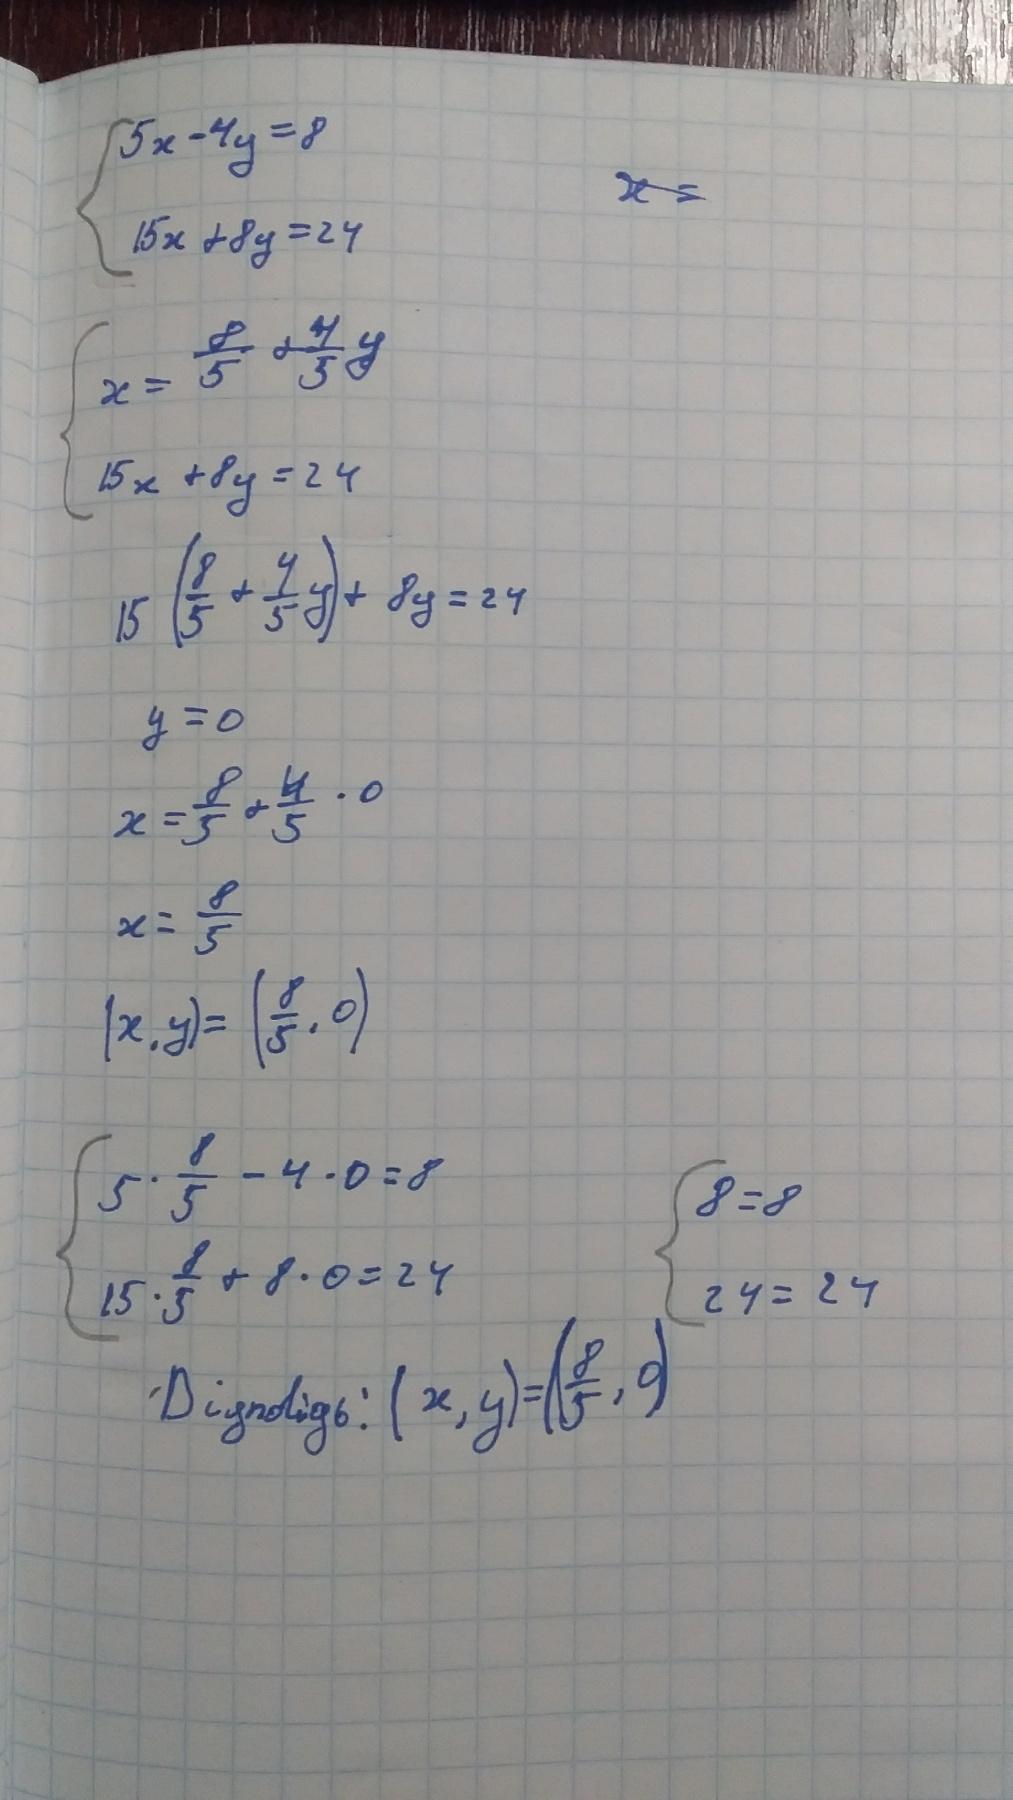 5x-4y=8
x=
15x+8y=24
x= 8/5 + 4/5 y
15x+8y=24
15 (8/5 + 4/5 y) + 8y=24
y=0
x= 8/5 + 4/5 · 0
x= 8/5
(x,y)= (8/5, 0)
5 · 8/5 - 4 · 0=8
15 · 8/5 + 8 · 0=24
8=8
24=24
(x,y)=(8/5, 0)